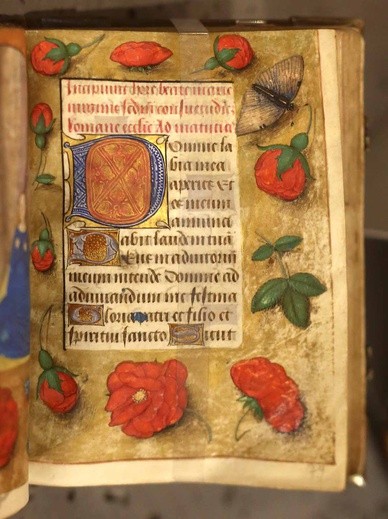 Incipiunt hore beate marie
virginis secundum consuetudinem
Romane ecclesie Ad matutinas
Domine la
bia mea
aperies Et
os meum
annunci
abit laudem tuam
Deus in adiutorium
meum intende Domine ad
adiuvandum me festina
Gloria patri et filio et
spiritui sancto Sicut